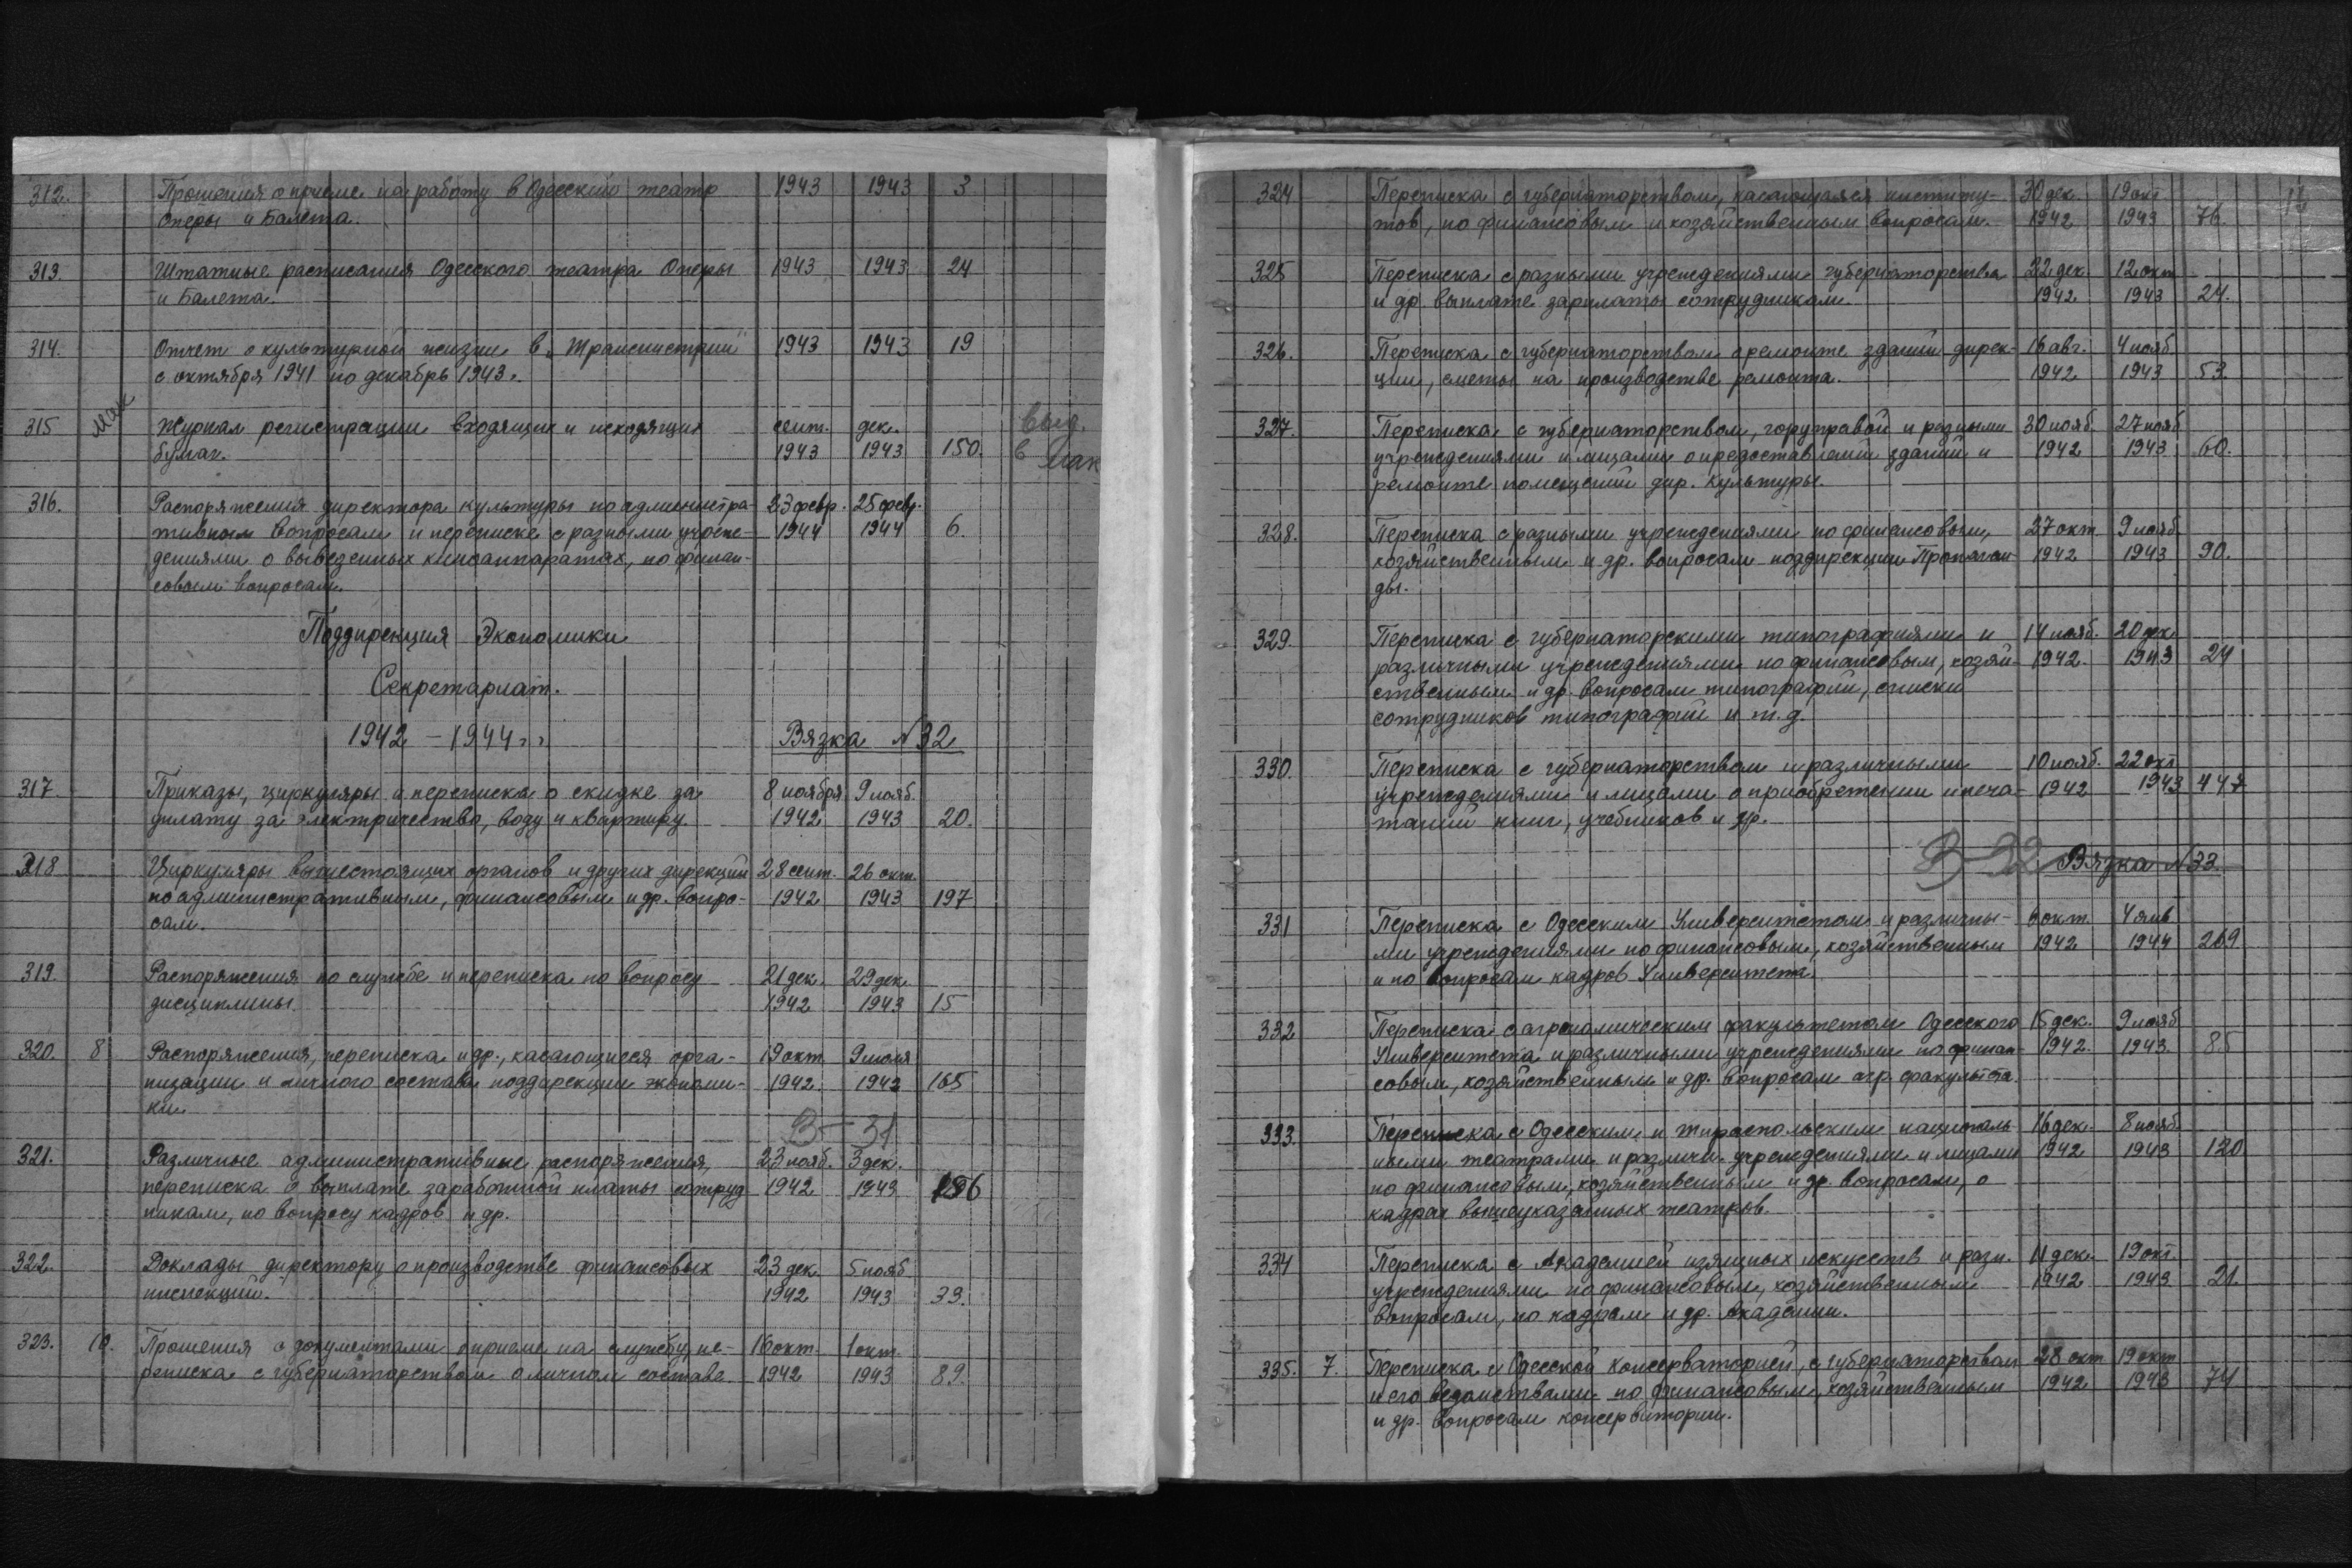 312. Прошения о приеме на работу в Одесский театр 1943 1943 3
Оперы и Балета.
313. Штатные расписания Одесского театра Оперы 1943 1943 24
и Балета.
314. Отчет о культурной жизни в „Транснистрии" 1943 1943 19
с октября 1941 по декабрь 1943г.
мак
315 Журнал регистрации входящих и исходящих сент. дек. выд.
бумаг. 1943 1943 150. в мак
316. Распоряжения директора культуры по администра- 23 февр. 25 февр.
тивным вопросам и переписке с разными учреж- 1944 1944 6.
дениями о вывезенных киноаппаратах, по финан-
совым вопросам.
Поддирекция Экономики
Секретариат.
1942 – 1944 г.г. Вязка № 32
317. Приказы, циркуляры и переписка о скидке за 8 ноября 9 нояб.
уплату за электричество, воду и квартиру. 1942 1943 20.
318 Циркуляры вышестоящих органов и других дирекций 28 сент. 26 окт.
по административным, финансовым и др. вопро- 1942 1943 197
сам.
319. Распоряжения по службе и переписка по вопросу 21 дек. 29 дек.
дисциплины. 1942 1943 15
320. 8 Распоряжения, переписка и др., касающиеся орга- 19 окт. 9 июля
низации и личного состава поддирекции экономи- 1942. 1942 165
ки.
В – 31
321. Различные административные распоряжения, 23 нояб. 3 дек.
переписка о выплате заработной платы сотруд 1942 1943 196
никам, по вопросу кадров и др.
322. Доклады директору о производстве финансовых 23 дек. 5 нояб
инспекций. 1942 1943 33.
323. 10. Прошения с документами о приеме на службу, пе- 16 окт. 1 окт.
реписка с губернаторством о личном составе. 1942 1943 89.
324 Переписка с губернаторством, касающаяся институ- 30 дек. 19 окт
тов, по финансовым и хозяйственным вопросам. 1942 1943 76.
325 Переписка с разными учреждениями губернаторства 22 дек. 12 окт
и др. выплате зарплаты сотрудникам. 1942 1943 24.
326. Переписка с губернаторством о ремонте зданий дирек- 16 авг. 4 нояб.
ции, сметы на производстве ремонта. 1942 1943 53.
327. Переписка с губернаторством, горуправой и разными 30 нояб. 27 нояб
учреждениями и лицами о предоставлении зданий и 1942 1943 60.
ремонте помещений дир. культуры.
328. Переписка с разными учреждениями по финансовым, 27 окт 9 нояб
хозяйственным и др. вопросам поддирекции Пропаган- 1942 1943 90.
ды.
329. Переписка с губернаторскими типографиями и 14 нояб. 20 дек
различными учреждениями по финансовым, хозяй- 1942. 1943 24
ственным и др. вопросам типографий, списки
сотрудников типографий и т.д.
330. Переписка с губернаторством и различными 10 нояб. 22 окт
учреждениями и лицами о приобретении и печа- 1942 1943 447
тании книг, учебников и др.
В-32 Вязка № 33.
331 Переписка с Одесским Университетом и различны- 6 окт. 4 янв
ми учреждениями по финансовым, хозяйственным 1942 1944 269
и по вопросам кадров Университета.
332 Переписка с агрономическим факультетом Одесского 15 дек. 9 нояб
Университета и различными учреждениями по финан- 1942. 1943. 85
совым, хозяйственным и др. вопросам агр. факультета.
333. Переписка с Одесским и Тираспольским националь 16 дек. 8 нояб
ными театрами и различн. учреждениями и лицами 1942 1943 120
по финансовым, хозяйственным и др. вопросам, о
кадрах вышеуказанных театров.
334 Переписка с Академией изящных искусств и разн. 11 дек. 19 окт.
учреждениями по финансовым, хозяйственным 1942 1943 21.
вопросам, по кадрам и др. Академии.
335. 7. Переписка с Одесской Консерваторией, с губернаторством 28 окт 19 окт
и его ведомствами по финансовым, хозяйственным 1942 1943 74
и др. вопросам консерватории.